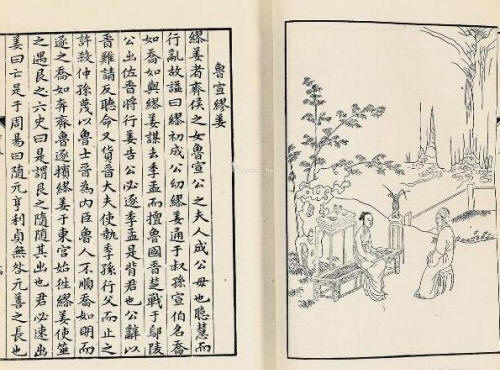 魯宣繆姜
繆姜者齊侯之女魯宣公之夫人成公母也聰慧而
行亂故謚曰繆初成公幼繆姜通于叔孫宣伯名喬
如喬如與繆姜謀去季孟而擅魯國晉楚戰于鄢陵
公出佐晉將行姜告公必逐季孟是背君也公辭以
晉難請反聽命又貨晉大夫使執季孫行父而止之
許殺仲孫蔑以魯士晉為內臣魯人不順喬如明而
逐之喬如奔齊魯遂擯繆姜于東宮始往繆姜使筮
之遇艮之六史曰是謂艮之隨隨其出也君必速出
姜曰亡是于周易曰隨元亨利貞無咎元善之長也